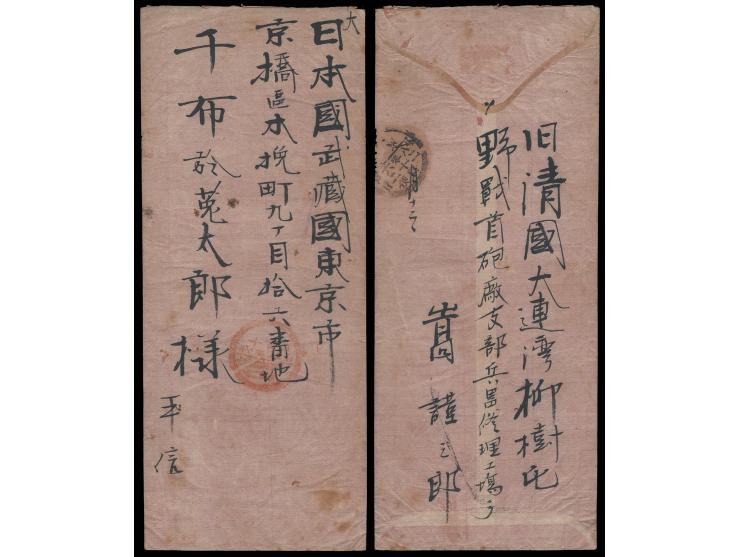 大日本國武藏國東京市
京橋區木挽町九丁目拾六番地
千布於菟太郎様
平信
旧清國大連湾柳樹屯
野戰首砲廠支部兵器修理工場ニテ
嵩謹三郎